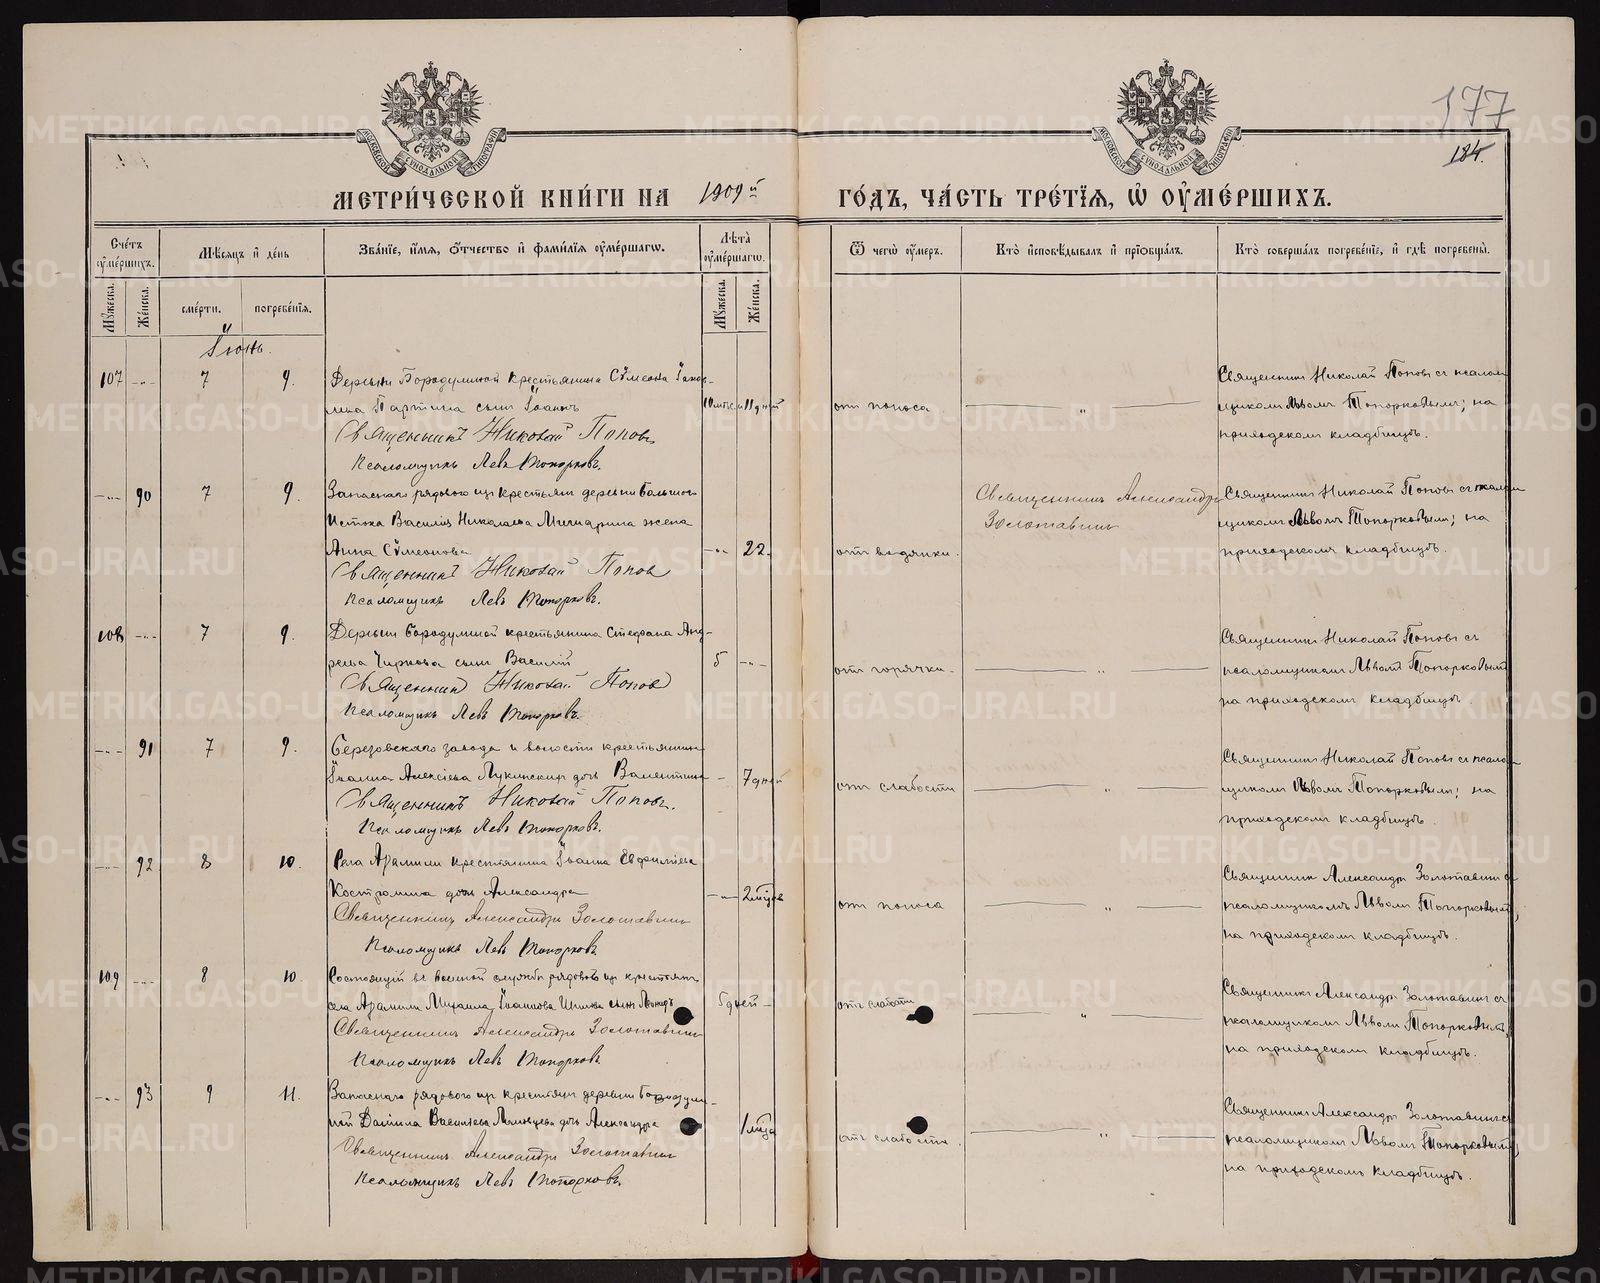 177
184.
МЕТРИ́ЧЕСКОЙ КНИ́ГИ НА 1909й ГО́ДЪ, ЧА́СТЬ ТРЕ́ТЇѦ, Ѡ҆ ОУ҆МЕ́РШИХЪ.
Счетъ оумершихъ.
Мѣсяцъ и день
Званіе, имя, отчество и фамилія оумершаго.
Лѣта оумершаго.
Ѿ чего оумеръ.
Кто исповѣдывалъ и пріобщалъ.
Кто совершалъ погребеніе, и гдѣ погребены.
Мужеска.
Женска.
смерти.
погребенія.
Мужеска.
Женска.
Іюнь.
107 7 9. Деревни Бородулиной крестьянина Сѵмеона Іаков-
лева Партина сынъ Іоаннъ 10 мѣс. и 11 дней
Священникъ Николай Поповъ
Псаломщикъ Левъ Топорковъ.
отъ поноса
Священникъ Николай Поповъ съ псалом
щикомъ Львомъ Топорковымъ; на
приходскомъ кладбищѣ.
90 7 9. Запаснаго рядового изъ крестьянъ деревни Большого
Истока Василія Николаева Мичкарина жена
Анна Сѵмеонова 22.
Священникъ Николай Поповъ
Псаломщикъ Левъ Топорковъ.
отъ водянки.
Священникъ Александръ
Золотавинъ
Священникъ Николай Поповъ съ псалом
щикомъ Львомъ Топорковымъ; на
приходскомъ кладбищѣ.
108 7 9. Деревни Бородулиной крестьянина Стефана Анд-
реева Чиркова сынъ Василій 5
Священникъ Николай Поповъ
Псаломщикъ Левъ Топорковъ.
отъ горячки.
Священникъ Николай Поповъ съ
псаломщикомъ Львомъ Топорковымъ
на приходскомъ кладбищѣ.
91 7 9. Березовскаго завода и волости крестьянина
Іоанна Алексіева Лукинскихъ дочь Валентина 7 дней
Священникъ Николай Поповъ.
Псаломщикъ Левъ Топорковъ.
отъ слабости
Священникъ Николай Поповъ съ псалом
щикомъ Львомъ Топорковымъ; на
приходскомъ кладбищѣ.
92 8 10. Села Арамили крестьянина Іоанна Евфиміева
Костромина дочь Александра 2 мѣсяца
Священникъ Александръ Золотавинъ
Псаломщикъ Левъ Топорковъ
отъ поноса
Священникъ Александръ Золотавинъ съ
псаломщикомъ Львомъ Топорковымъ,
на приходскомъ кладбищѣ.
109 8 10. Состоящій въ военной службѣ рядовой изъ крестьянъ
села Арамили Михаила Іоаннова сынъ Леонидъ 5 дней
Священникъ Александръ Золотавинъ
Псаломщикъ Левъ Топорковъ
отъ слабости
Священникъ Александръ Золотавинъ съ
псаломщикомъ Львомъ Топорковымъ,
на приходскомъ кладбищѣ.
93 9 11. Запаснаго рядового изъ крестьянъ деревни Бородули-
ной Даніила Васильева дочь Александра 1 мѣсяца
Священникъ Александръ Золотавинъ
Псаломщикъ Левъ Топорковъ
отъ слабости.
Священникъ Александръ Золотавинъ съ
псаломщикомъ Львомъ Топорковымъ,
на приходскомъ кладбищѣ.
METRIKI.GASO-URAL.RU